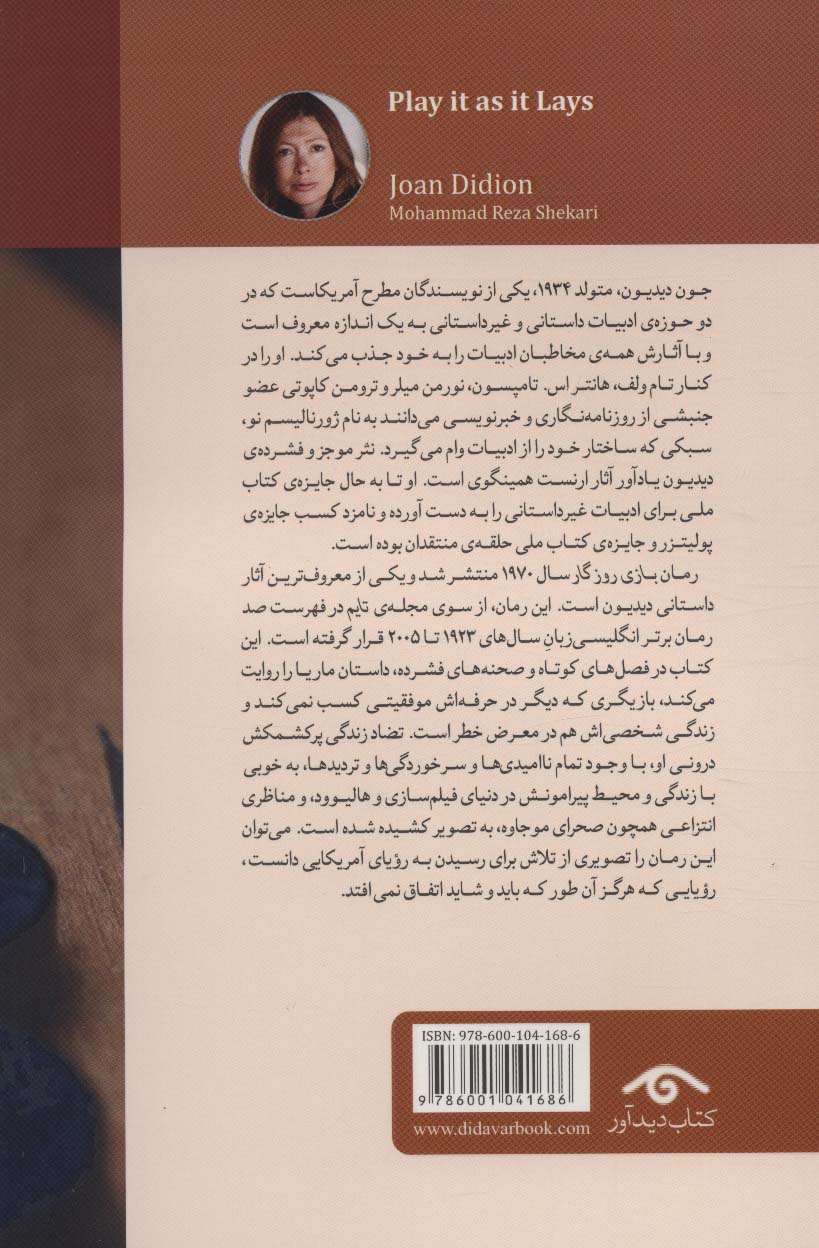 Play it as it Lays
Joan Didion
Mohammad Reza Shekari
جون دیدیون، متولد ۱۹۳۴، یکی از نویسندگان مطرح آمریکاست که در
دو حوزه‌ی ادبیات داستانی و غیرداستانی به یک اندازه معروف است
و با آثارش همه‌ی مخاطبان ادبیات را به خود جذب می‌کند. او را در
کنار تام ولف، هانتر اس. تامپسون، نورمن میلر و ترومن کاپوتی عضو
جنبشی از روزنامه‌نگاری و خبرنویسی می‌دانند به نام ژورنالیسم نو،
سبکی که ساختار خود را از ادبیات وام می‌گیرد. نثر موجز و فشرده‌ی
دیدیون یادآور آثار ارنست همینگوی است. او تا به حال جایزه‌ی کتاب
ملی برای ادبیات غیرداستانی را به دست آورده و نامزد کسب جایزه‌ی
پولیتزر و جایزه‌ی کتاب ملی حلقه‌ی منتقدان بوده است.
رمان بازی روزگار سال ۱۹۷۰ منتشر شد و یکی از معروف‌ترین آثار
داستانی دیدیون است. این رمان، از سوی مجله‌ی تایم در فهرست صد
رمان برتر انگلیسی‌زبانِ سال‌های ۱۹۲۳ تا ۲۰۰۵ قرار گرفته است. این
کتاب در فصل‌های کوتاه و صحنه‌های فشرده، داستان ماریا را روایت
می‌کند، بازیگری که دیگر در حرفه‌اش موفقیتی کسب نمی‌کند و
زندگی شخصی‌اش هم در معرض خطر است. تضاد زندگی پرکشمکش
درونی او، با وجود تمام ناامیدی‌ها و سرخوردگی‌ها و تردیدها، به خوبی
با زندگی و محیط پیرامونش در دنیای فیلم‌سازی و هالیوود، و مناظری
انتزاعی همچون صحرای موجاوه، به تصویر کشیده شده است. می‌توان
این رمان را تصویری از تلاش برای رسیدن به رؤیای آمریکایی دانست،
رؤیایی که هرگز آن طور که باید و شاید اتفاق نمی‌افتد.
ISBN: 978-600-104-168-6
9 786001 041686
www.didavarbook.com
کتاب دیدآور